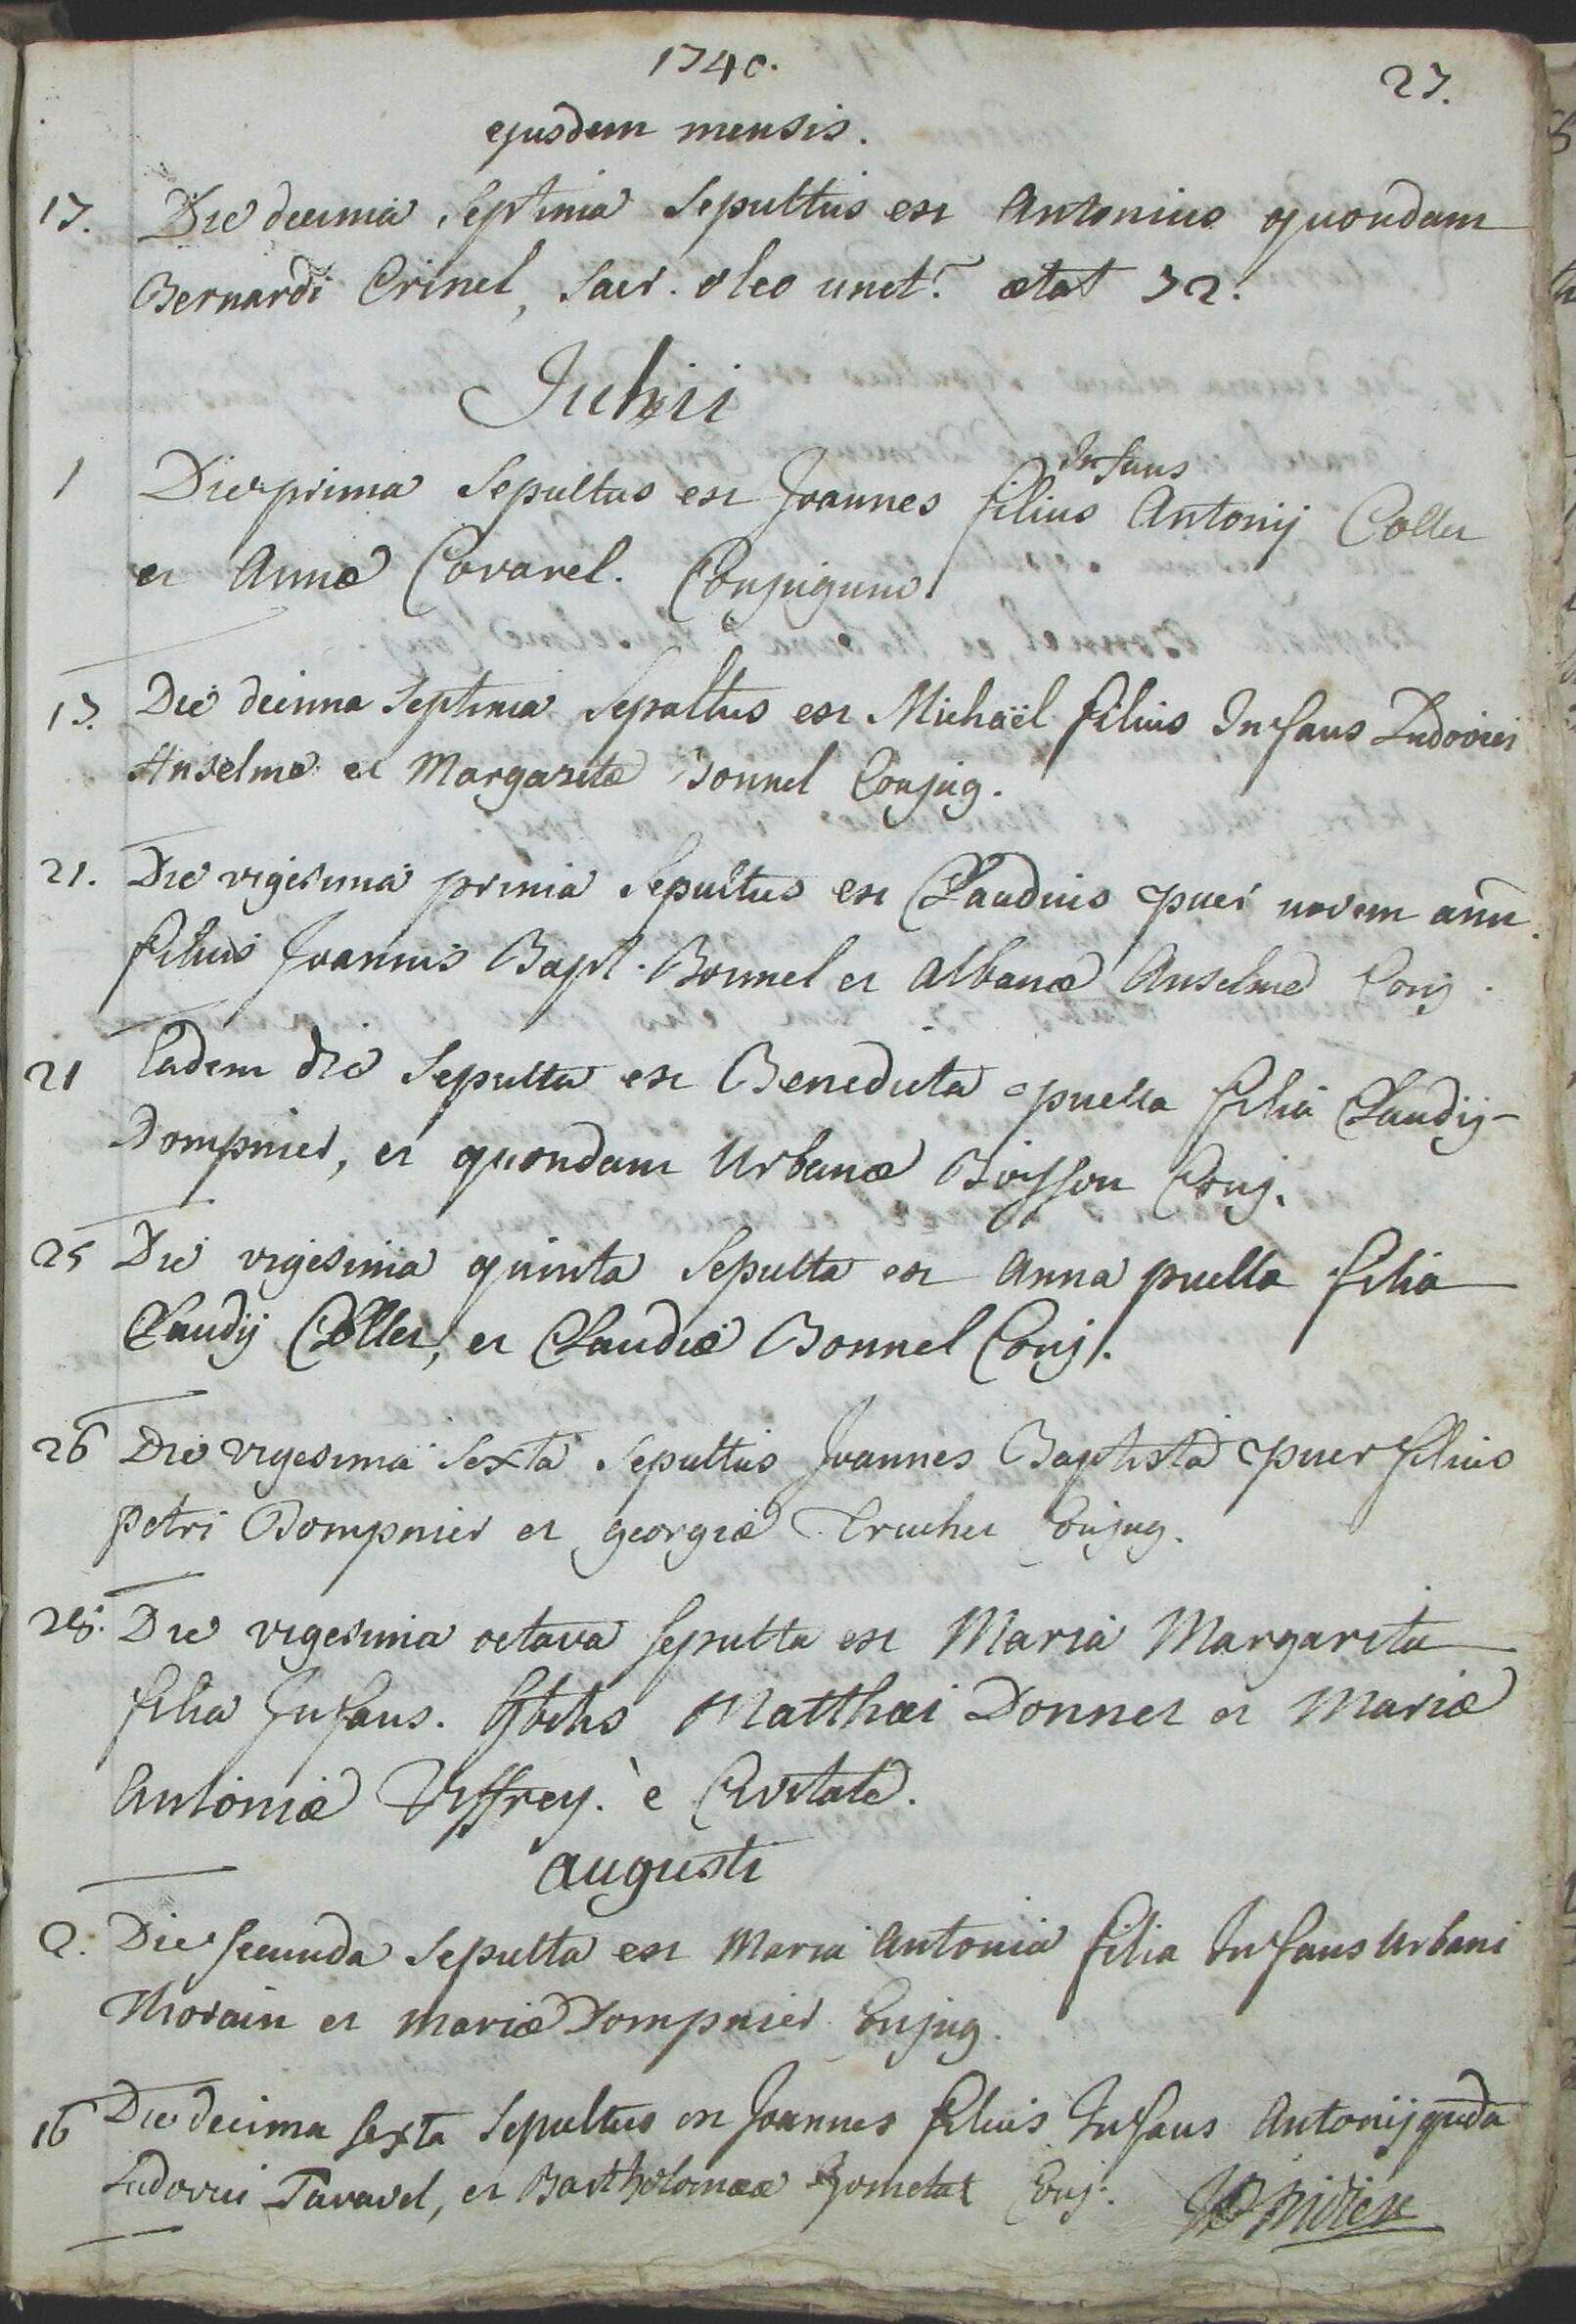 1740.
27.
ejusdem mensis.
17. Die decima Septima Sepultus est Antonius quondam
Bernardi Crinel, Sacr. oleo unct. ætat 32.
Julii
Infans
1 Die prima Sepultus est Joannes filius Antonij Coller
et Annæ Covarel. Conjugum.
17. Die decima Septima Sepultus est Michaël filius Infans Ludovici
Anselme et Margaritæ Bonnel Conjug.
21. Die vigesima prima Sepultus est Claudius puer novem ann.
filius Joannis Bapt. Bonnel et Albanæ Anselme Conj.
21 Eadem die Sepulta est Benedicta puella filia Claudij
Dompnier, et quondam Urbanæ Boisson Conj.
25 Die vigesima quinta Sepulta est Anna puella filia
Claudij Coller, et Claudiæ Bonnel Conj.
26 Die vigesima Sexta Sepultus Joannes Baptista puer filius
Petri Dompnier et georgiæ Truchet Conjug.
28. Die vigesima octava Sepulta est Maria Margarita
filia Infans. Matthæi Donnet et Mariæ
Antoniæ Viffrey. è Civitate.
augusti
2. Die Secunda Sepulta est Maria Antonia filia Infans Urbani
Thorain et Mariæ Dompnier Conjug.
16 Die decima Sexta Sepultus est Joannes filius Infans Antonij qnda
Ludovici Taravel, et Bartholomææ Jometat Conj.